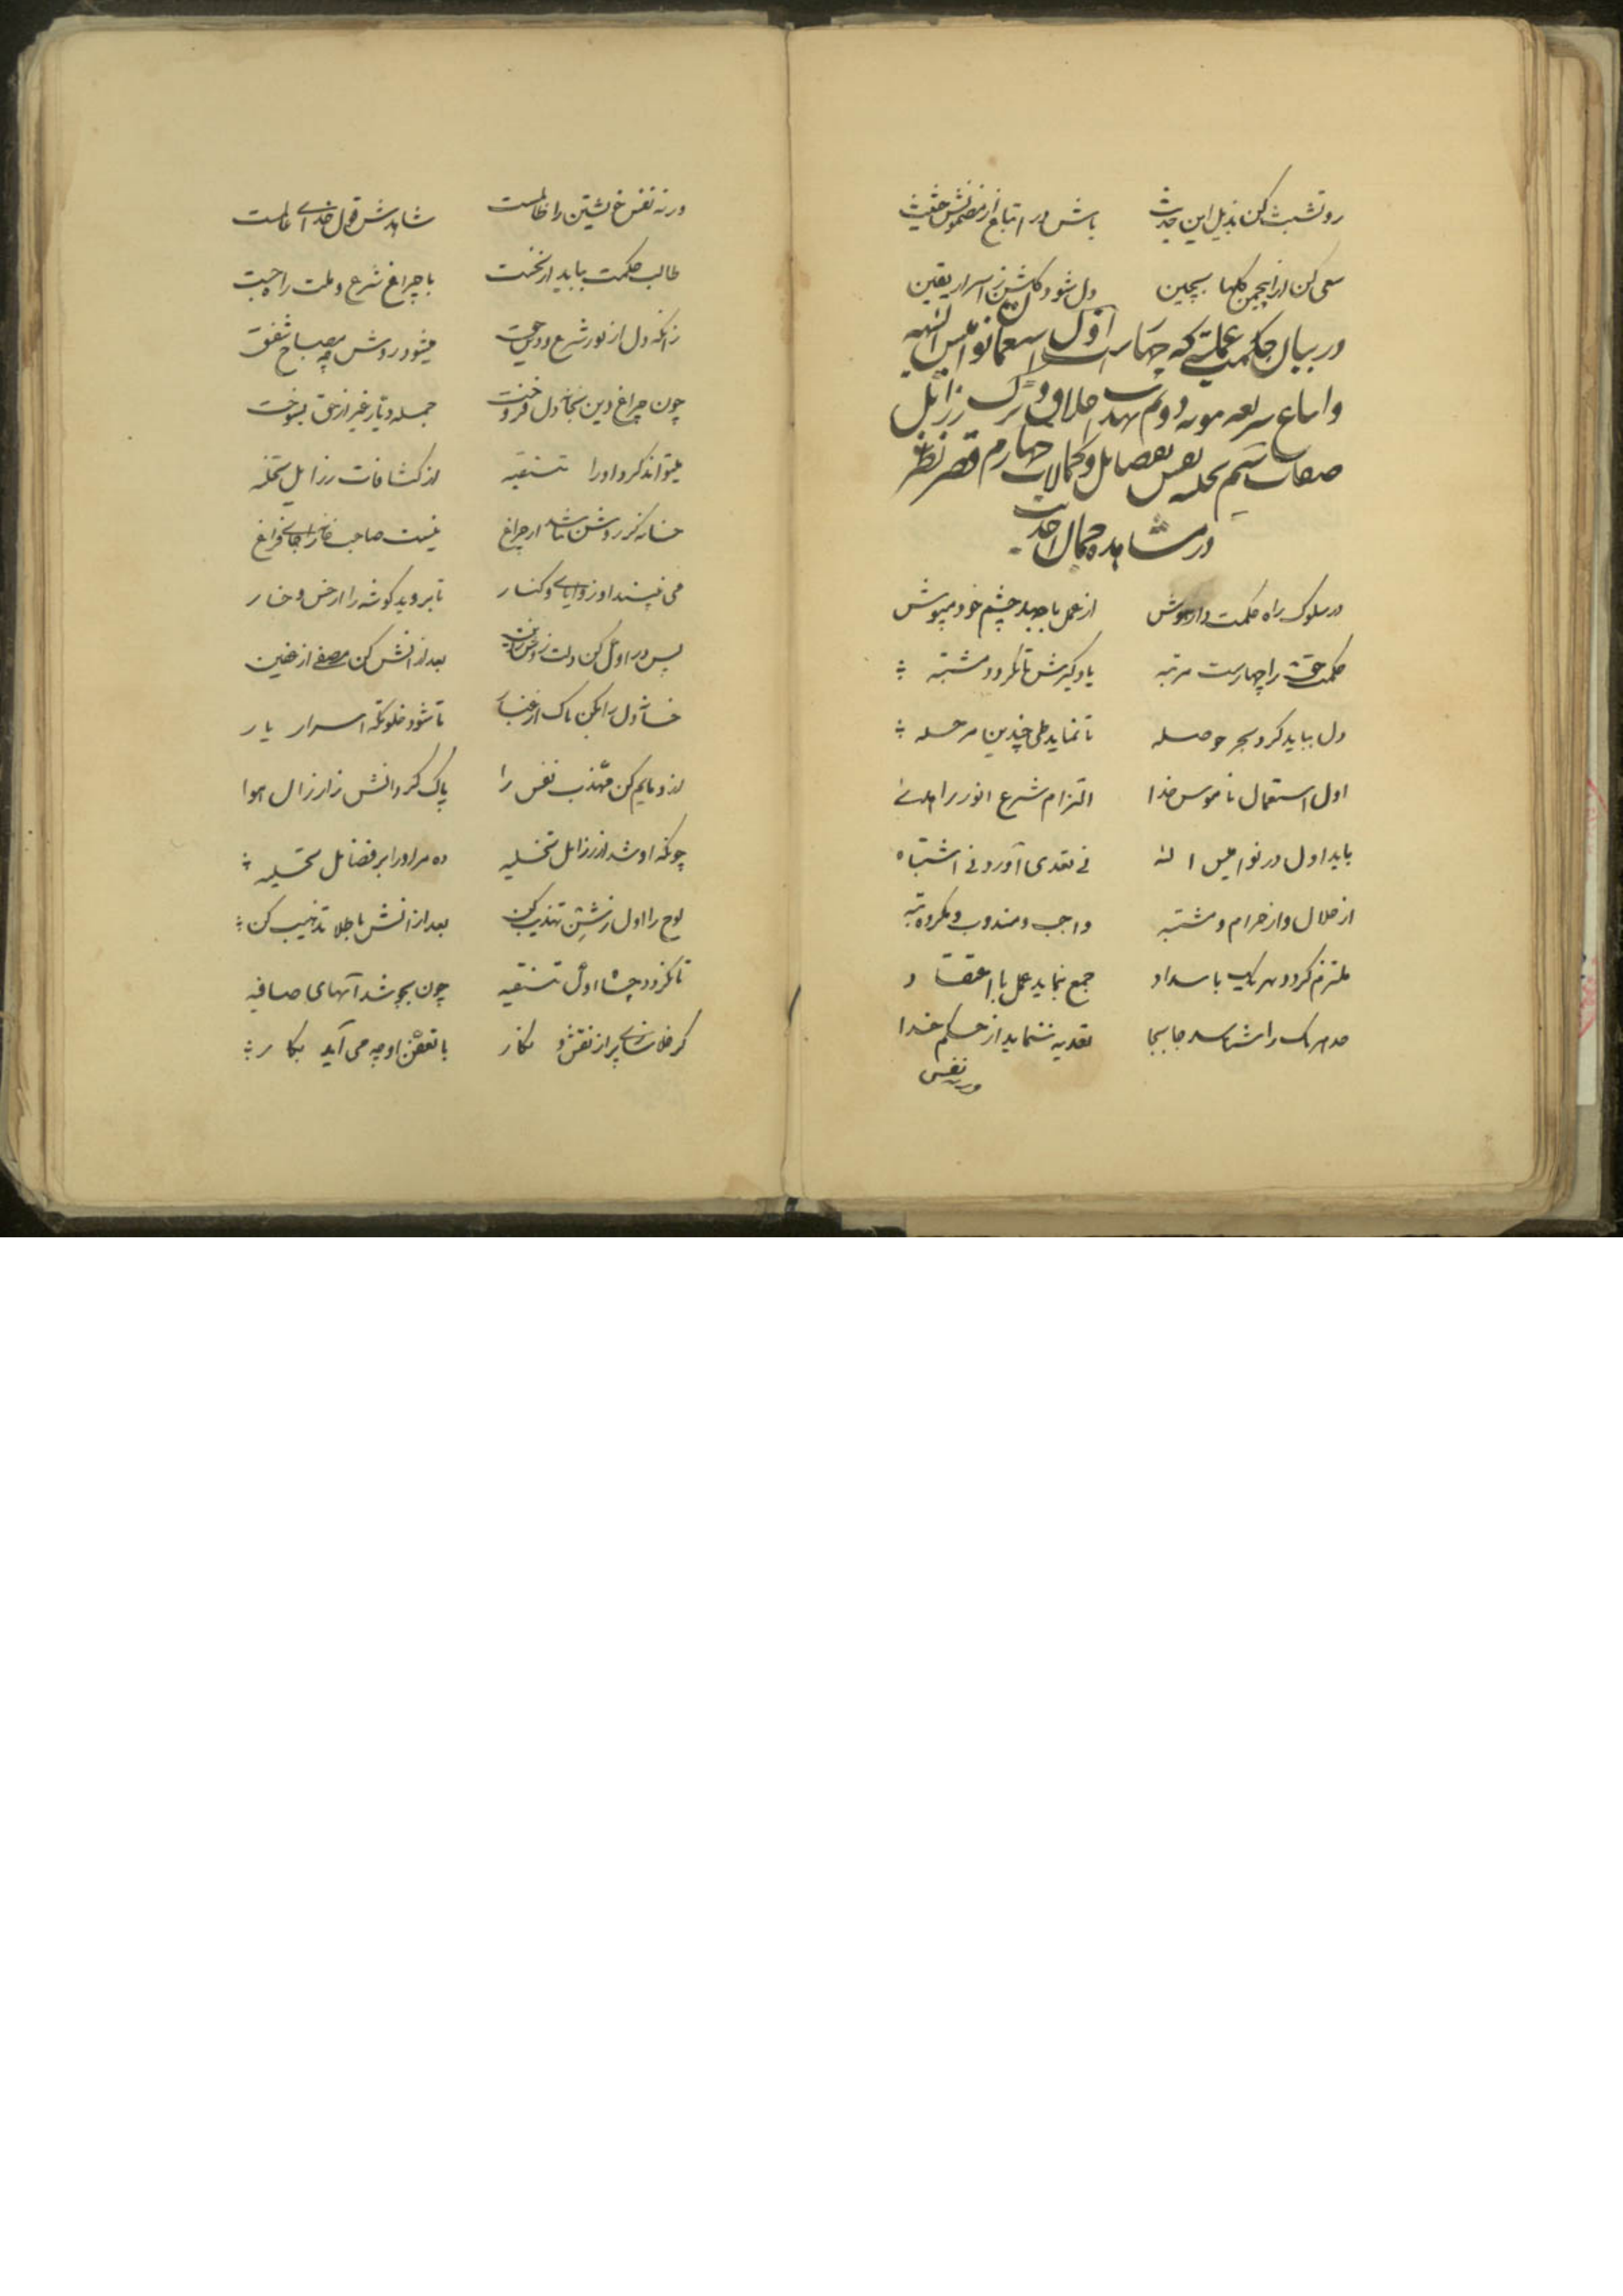 رو تشبث کن بذیل این حدیث باش در اتباع از مضمونش حثیث
سعی کن از انجمن گلها بچین دل شود گلشن ز اسرار یقین
در بیان حکمت عملیه که چهار است اول استعمال نوامیس الهیه
و اتباع شریعه دوم تهذیب اخلاق و ترک رذایل
صفات سیم تحلیه نفس بفضایل و کمالات چهارم قصر نظر
در مشاهده جمال احدیت
در سلوک راه حکمت دار هوش از عمل باجهد چشم خود مپوش
حکمت حق را چهارست مرتبه یاد گیرش تا نگردد مشتبه
دل بباید کرد بحر حوصله تا نماید طی چندین مرحله
اول استعمال ناموس خدا التزام شرع انور را هدی
باید اول در نوامیس اله نی تعدی آورد نی اشتباه
از حلال و از حرام و مشتبه واجب و مندوب و مکروه
ملتزم گردد بهر یک با سداد جمع بنماید عمل با اعتقاد
حد هر یک را شناسد جابجا تعدیه ننماید از حکم خدا
ورنه نفس
ورنه نفس خویشتن را ظالمست شاهدش قول خدای عالمست
طالب حکمت بباید از نخست با چراغ شرع و ملت راه جست
زانکه دل از نور شرع میشود روشن چه مصباح شفق
چون چراغ دین بخانه دل فروخت جمله دیار غیر از حق بسوخت
میتواند کرد او را تنقیه از کثافات رذایل تخلیه
خانه گر روشن نباشد از چراغ نیست صاحب خانه را جای فراغ
می نبیند او زوایای و کنار تا بروید گوشه را از خس و خار
پس در اول کن دلت روشن ز دین بعد از انش کن مصفی از غین
خانه دل را بکن پاک از غبار تا شود خلوتگه اسرار یار
از دویم کن مهذب نفس را پاک گردانش ز ارذال هوا
چونکه او شد از رذایل تخلیه ده مر او را بر فضایل تحلیه
لوح را اول ز تهذیب کن بعد از انش با جلا تذهیب کن
تا نگردد چشا اول تنقیه چون بجوشد آبهای صافیه
گر خلا پر از نقش و نگار با تعفن او چه می آید بکار